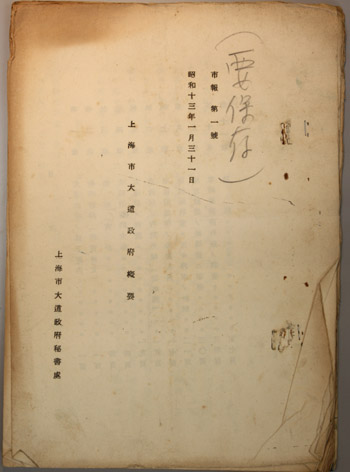 (要保存)
市報 第一號
昭和十三年一月三十一日
上海市大道政府概要
上海市大道政府秘書處